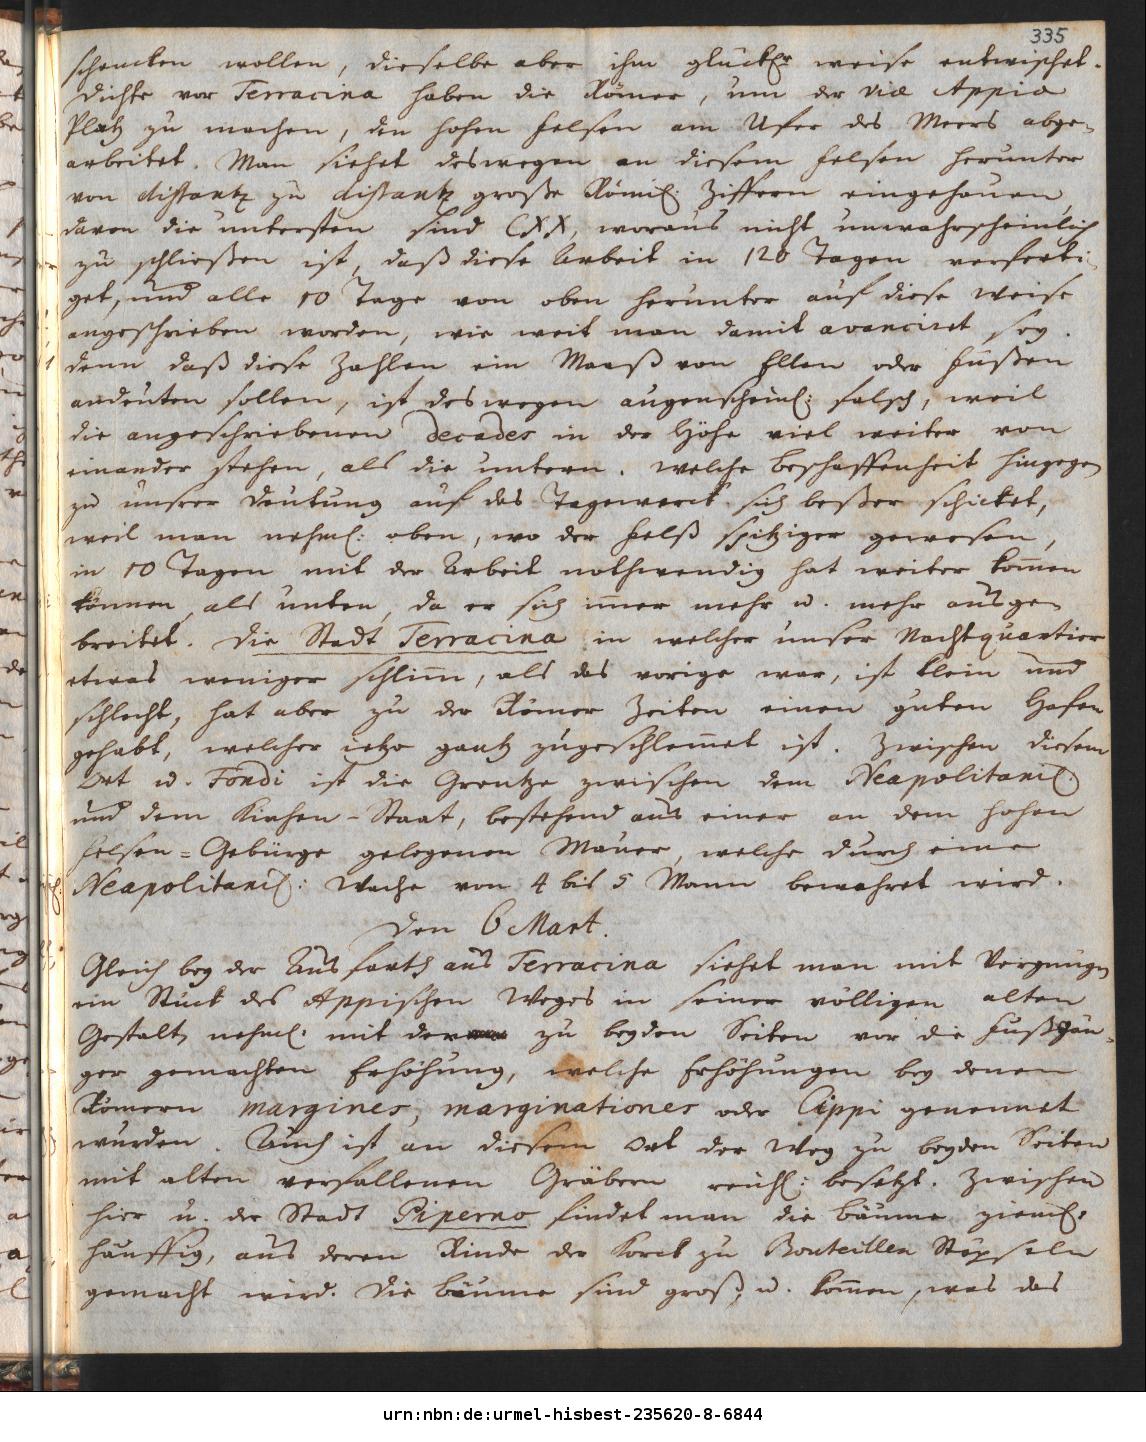 335
schencken wollen, dieselbe aber ihm glückl. weise entwischet.
Dichte vor Terracina haben die Römer, um der via Appia
Platz zu machen, den hohen Felsen am Ufer des Meers abge-
arbeitet. Man siehet deswegen an diesem Felsen herunter
von distantz zu distantz große Römis. Ziffern eingehauen,
davon die untersten sind CXX, woraus nicht unwahrscheinlich
zu schließen ist, daß diese Arbeit in 120 Tagen verferti-
get, und alle 10 Tage von oben herunter auf diese Weise
angeschrieben worden, wie weit man damit avanciret sey.
denn daß diese Zahlen ein Maaß von Ellen oder Füßen
andeuten sollen, ist deswegen augenscheinl: falsch, weil
die angeschriebenen decades in der Höhe viel weiter von
einander stehen, als die untern. welche beschaffenheit hingegen
zu unsrer Deutung auf das Tagewerck sich beßer schicket,
weil man nehml: oben, wo der Felß spitziger gewesen,
in 10 Tagen mit der Arbeit nothwendig hat weiter kom̄en
können, als unten, da er sich im̄er mehr u. mehr ausge-
breitet. Die Stadt Terracina in welcher unser Nachtquartier
etwas weniger schlim̄, als das vorige war, ist klein und
schlecht, hat aber zu der Römer Zeiten einen guten Hafen
gehabt, welcher ietzo gantz zugeschlem̄et ist. Zwischen diesem
Ort u. Fondi ist die Grentze zwischen dem Neapolitanis.
und dem Kirchen-Staat, bestehend aus einer an dem hohen
Felsen-Gebürge gelegenen Mauer, welche durch eine
Neapolitanis: Wache von 4 bis 5 Mann bewahret wird.
Den 6 Mart.
Gleich bey der Ausfarth aus Terracina siehet man mit Vergnügen
ein Stück des Appischen Weges in seiner völligen alten
Gestalt, nehml. mit der zu beyden Seiten vor die Fußgän-
ger gemachten Erhöhung, welche Erhöhungen bey denen
Römern margines, marginationes oder Cippi genennet
wurden. Auch ist an diesem Ort der Weg zu beyden Seiten
mit alten verfallenen Gräbern reichl: besetzt. Zwischen
hier u. der Stadt Piperno findet man die bäume zieml.
häuffig, aus deren Rinde der Korck zu Bouteillen Stöpseln
gemacht wird. Die bäume sind groß, u. kom̄en, was das
urn:nbn:de:urmel-hisbest-235620-8-6844